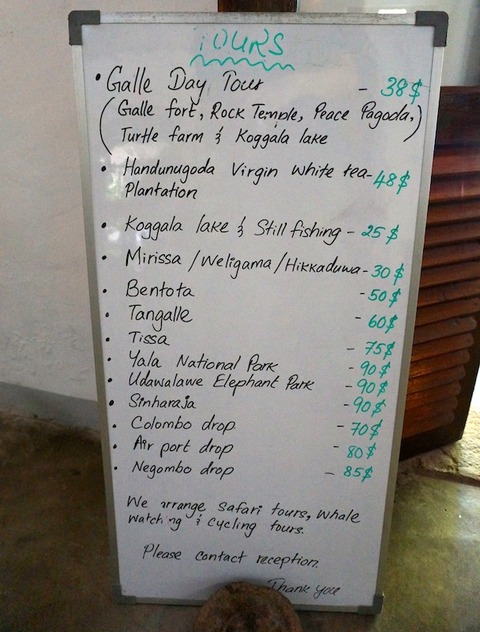 TOURS
• Galle Day Tour - 38$
(Galle fort, Rock Temple, Peace Pagoda,
Turtle farm & Koggala lake)
• Handunugoda Virgin White tea- 48$
Plantation
• Koggala lake & Still fishing - 25$
• Mirissa / Weligama / Hikkaduwa - 30$
• Bentota - 50$
• Tangalle - 60$
• Tissa - 75$
• Yala National Park - 90$
• Udawalawe Elephant Park - 90$
• Sinharaja - 90$
• Colombo drop - 70$
• Air port drop - 80$
• Negombo drop - 85$
We arrange Safari tours, Whale
watching & Cycling tours.
Please contact reception.
Thank you